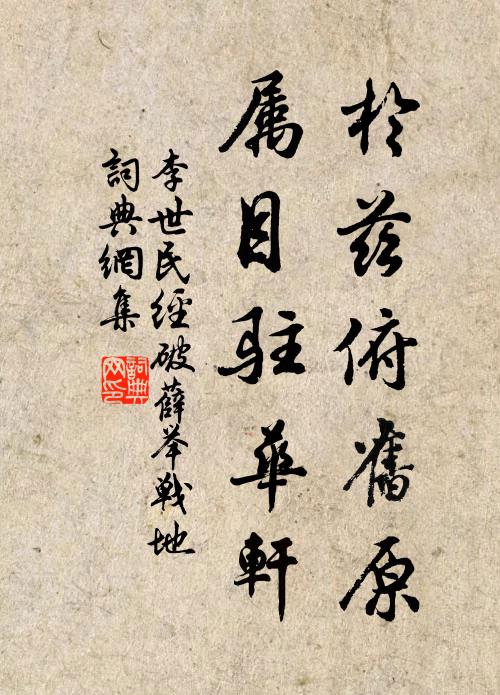 於茲俯舊原
属目駐華軒
李世民經破薛举戰地
詞典網集
詞典網印